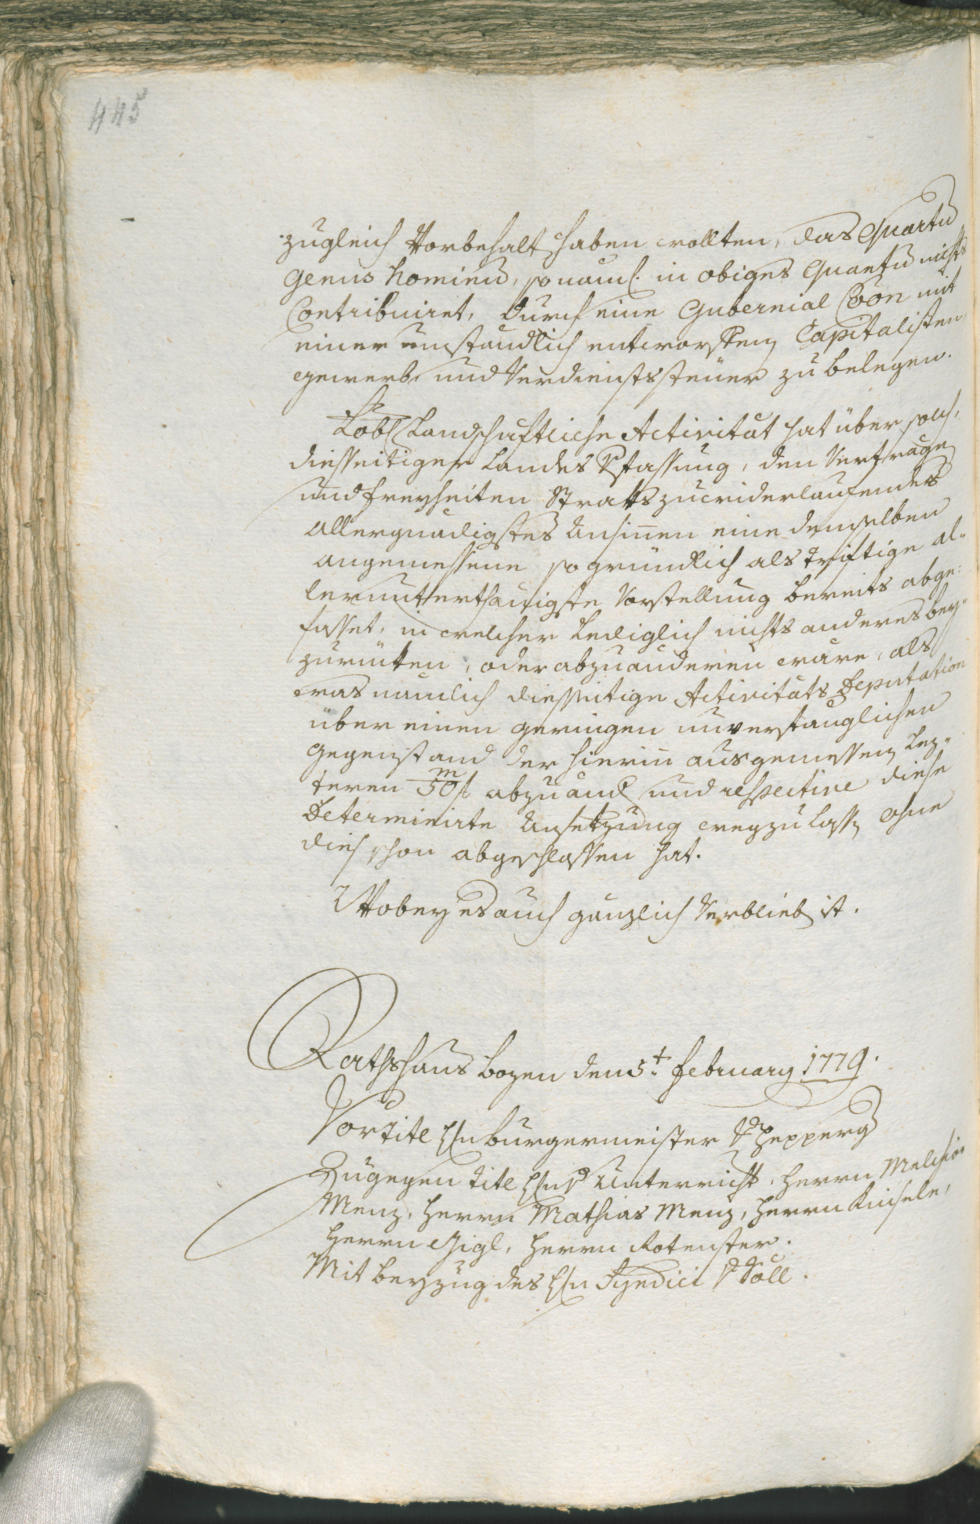 445
zugleich Vorbehalt haben wollten, das Quartū
genus hominū, so nauml. in obiges Quantū nichts
Contribuiret, durch eine Gubernial Coōn mit
einer umständlich entworffenen Capitalisten
gewerb und Verdienstssteuer zu belegen.
Löbl. Landschaftliche Activitat hat über solch,
diesseitiger Landes Vfassung, den Verträgen
und freyheiten Stracks zuwiderlaufendes
Allergnädigstes Ansiñen eine demselben
angemessene so gründlich als triftige al-
lerunterthänigste Vorstellung bereits abge-
fasset, in welcher Lediglich nichts anderes bey-
zurucken, oder abzuänderen wäre, als
was nämlich diesseitige Activitäts Deputation
über einen geringen unverfänglichen
gegenstand der hierin ausgemessenen lez-
teren 50 m fl abzuänd. und respective diese
Determinirte Ansetzung wegzulassen ohne
dies schon abgeschlossen hat.
Wobey es auch gänzlich Verblieben ist.
Rathshaus Bozen den 5t. February 1779.
Vor Tite Hrn Burgermeister v Zepperg
Zugegen Tite Hrn v Unterricht. Herrn Melchior
Menz, Herrn Mathias Menz, Herrn Kinsele,
Herrn Gigl, Herrn Rotenster.
Mit beyzug des Hrn Syndici v Söll.